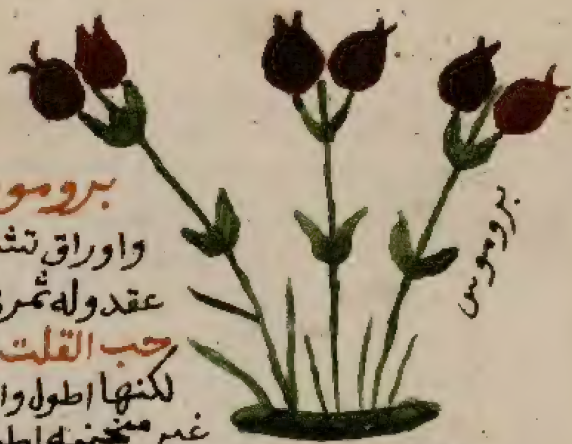 برومو
واوراق تشـ
عقد وله ثمر
حب القلت
لكنها اطول وا
غير منحنية اطو
بروموس